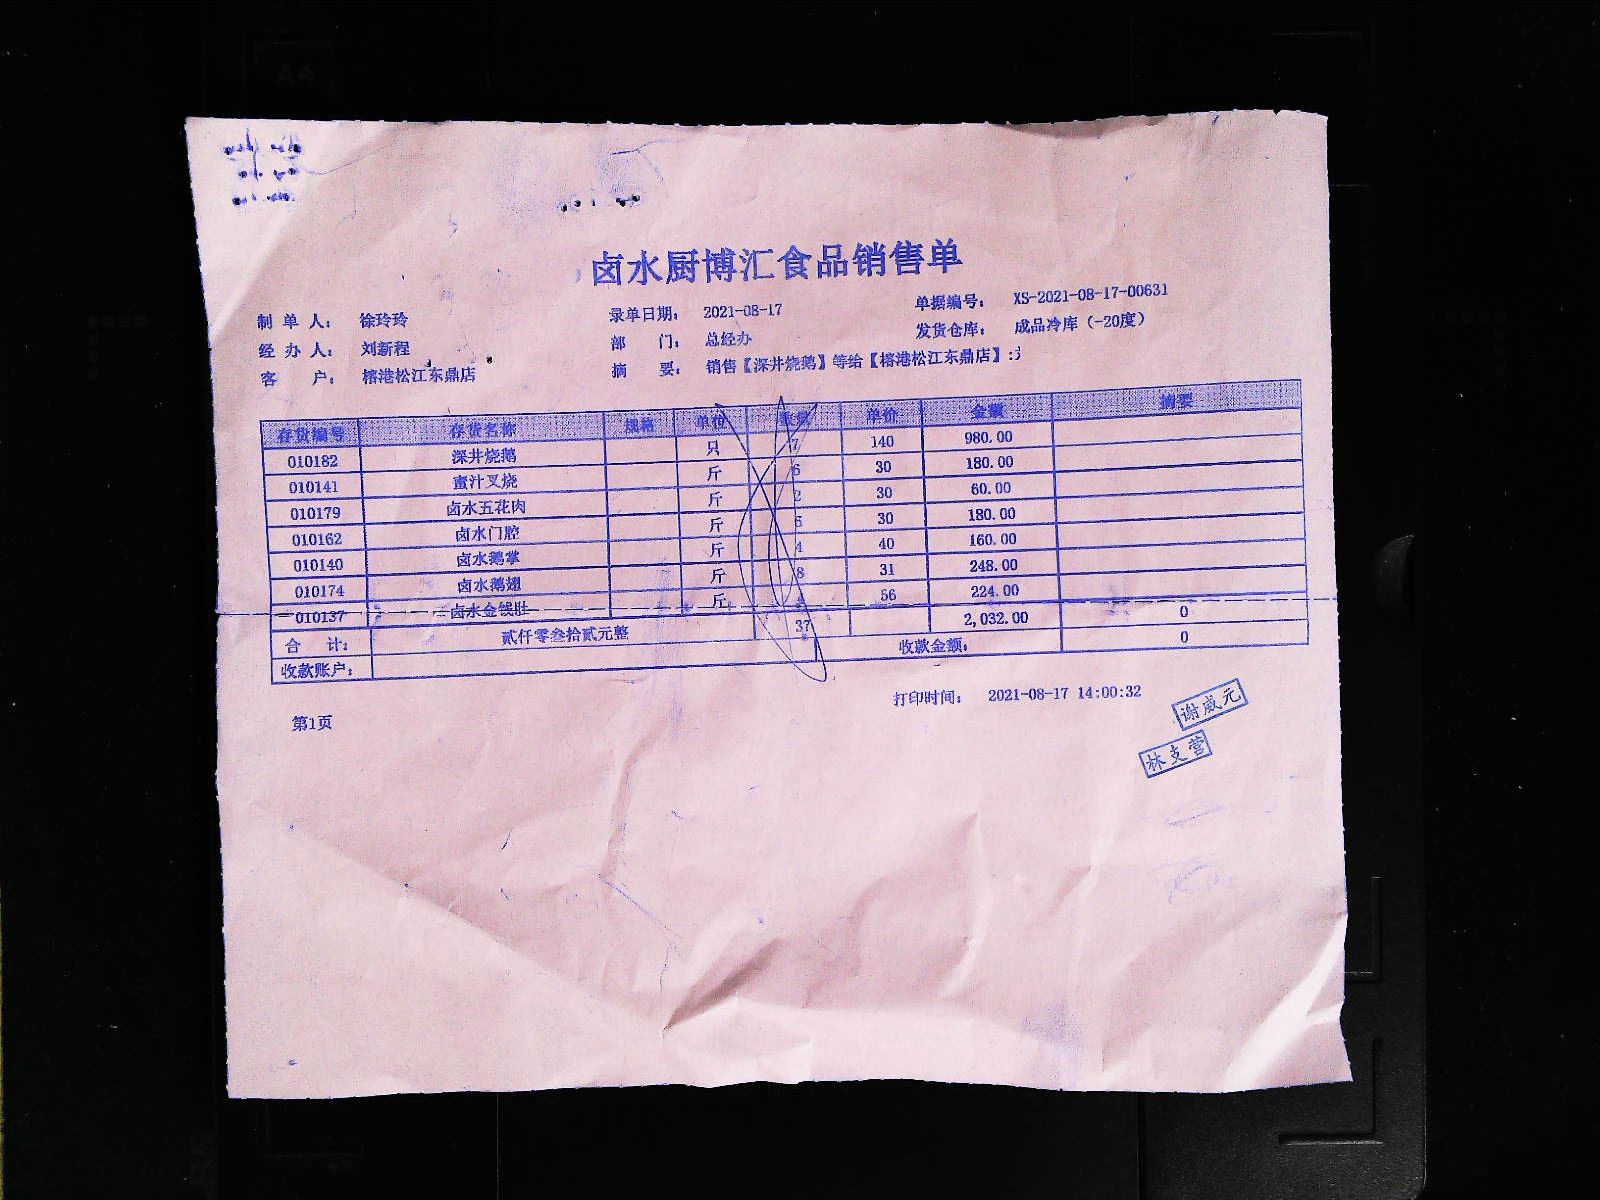 卤水厨博汇食品销售单
制单人: 徐玲玲 录单日期: 2021-08-17 单据编号: XS-2021-08-17-00631
经办人: 刘新程 部 门: 总经办 发货仓库: 成品冷库(-20度)
客 户: 榕港松江东鼎店 摘 要: 销售【深井烧鹅】等给【榕港松江东鼎店】:
存货编号 存货名称 规格 单位 数量 单价 金额 摘要
010182 深井烧鹅 只 7 140 980.00
010141 蜜汁叉烧 斤 6 30 180.00
010179 卤水五花肉 斤 2 30 60.00
010162 卤水门腔 斤 6 30 180.00
010140 卤水鹅掌 斤 4 40 160.00
010174 卤水鹅翅 斤 8 31 248.00
010137 卤水金钱肚 斤 4 56 224.00
合 计: 贰仟零叁拾贰元整 37 2,032.00 0
收款账户: 收款金额: 0
第1页 打印时间: 2021-08-17 14:00:32
谢威元
林支营